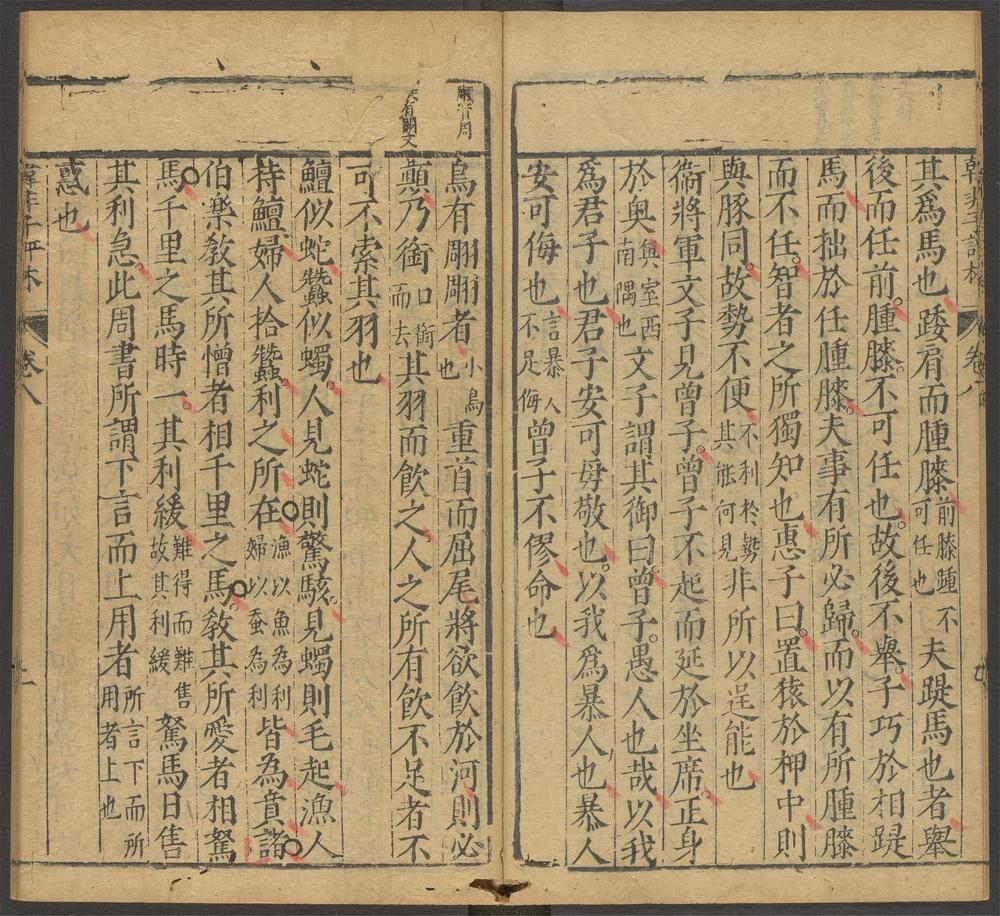 其爲馬也踒肩而腫膝前膝踵不可任也夫踶馬也者舉
後而任前腫膝不可任也故後不舉子巧於相踶
馬而拙於任腫膝夫事有所必歸而以有所腫膝
而不任智者之所獨知也惠子曰置猿於柙中則
與豚同故勢不便不利於勢其能何見非所以逞能也
衞將軍文子見曾子曾子不起而延於坐席正身
於奥奥室西南隅也文子謂其御曰曾子愚人也哉以我
爲君子也君子安可毋敬也以我爲暴人也暴人
安可侮也言暴人不足侮曾子不僇命也
有闕文
鳥有翢翢者小鳥也重首而屈尾將欲飲於河則必
顚乃銜口銜而去其羽而飲之人之所有飲不足者不
可不索其羽也
鱣似蛇蠶似蠋人見蛇則驚駭見蠋則毛起漁人
持鱣婦人拾蠶利之所在漁以魚為利婦以蚕為利皆為賁諸
伯樂敎其所憎者相千里之馬敎其所愛者相駑
馬千里之馬時一其利緩難得而難售故其利緩駑馬日售
其利急此周書所謂下言而上用者所言下而所用者上也
惑也
卷八